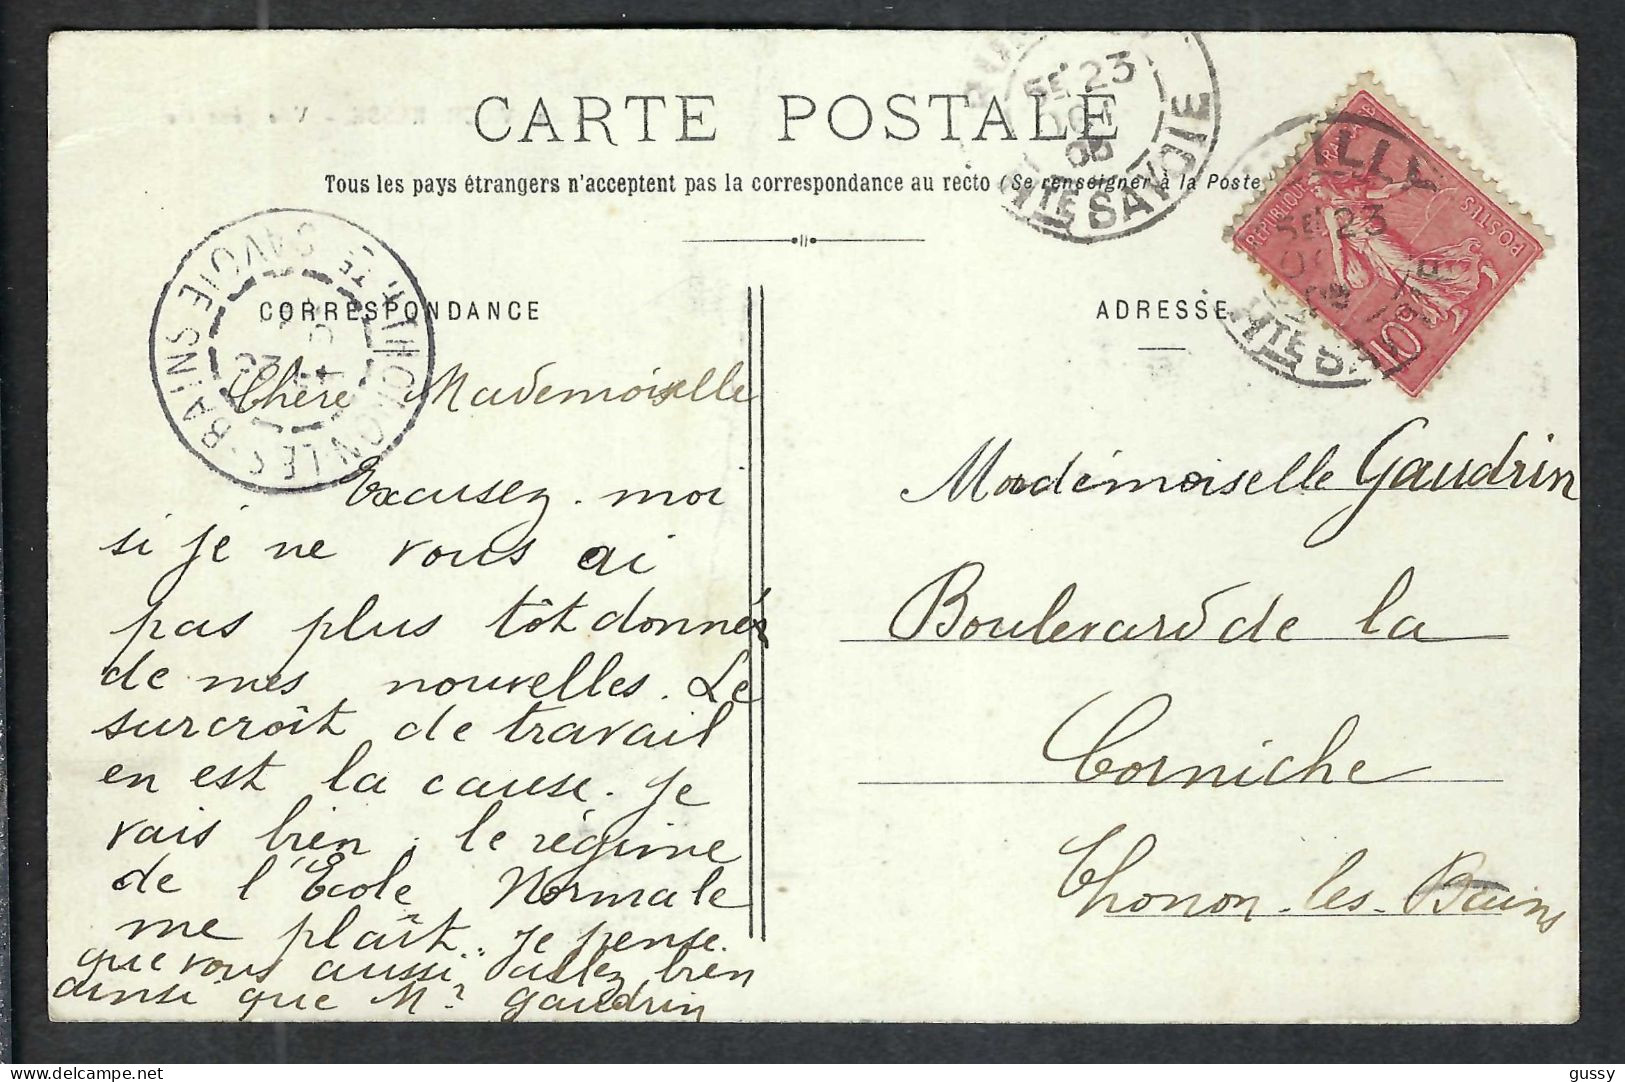 CARTE POSTALE
Tous les pays étrangers n'acceptent pas la correspondance au recto (Se renseigner à la Poste
CORRESPONDANCE
Chère Mademoiselle
Excusez-moi
si je ne vous ai
pas plus tôt donné
de mes nouvelles. Le
surcroît de travail
en est la cause. Je
vais bien. le régime
de l'École Normale
me plaît. Je pense.
que vous aussi allez bien
ainsi que Mr Gaudrin
ADRESSE
Mademoiselle Gaudrin
Boulevard de la
Corniche
Thonon-les-Bains
SE 23
OCT
HTE SAVOIE
ILLY
SE 23
HTE SAV
REPUBLIQUE FRANÇAISE
POSTES
10c
THONON-LES-BAINS HTE SAVOIE
gussy
delcampe.net